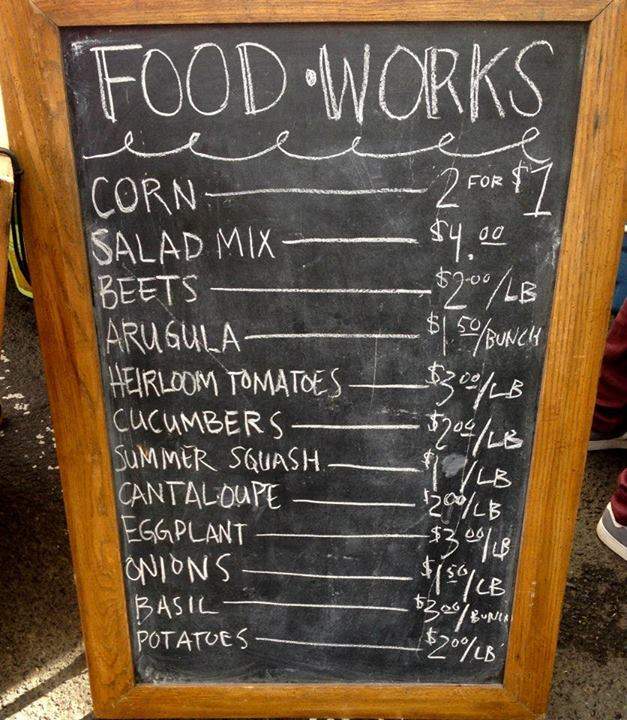 FOOD·WORKS
CORN 2 FOR $1
SALAD MIX $4.00
BEETS $2.00/LB
ARUGULA $1.50/BUNCH
HEIRLOOM TOMATOES $3.00/LB
CUCUMBERS $2.00/LB
SUMMER SQUASH $1/LB
CANTALOUPE $2.00/LB
EGGPLANT $3.00/LB
ONIONS $1.50/LB
BASIL $3.00/BUNCH
POTATOES $2.00/LB